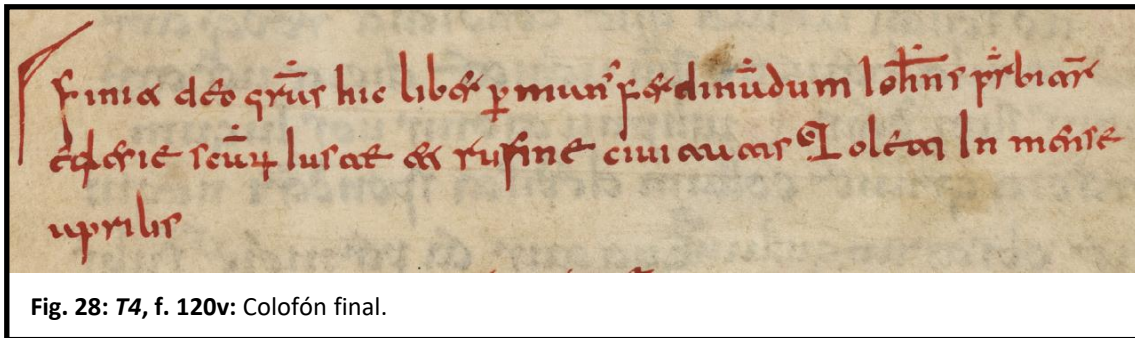 Finit deo grās hic liber ꝑ man' ferdinādum Iohn̄s prs̄biter̄
eglesie scāꝝ Iuste et rufine ciuitatis Toleti In mense
aprilis
Fig. 28: T4, f. 120v: Colofón final.